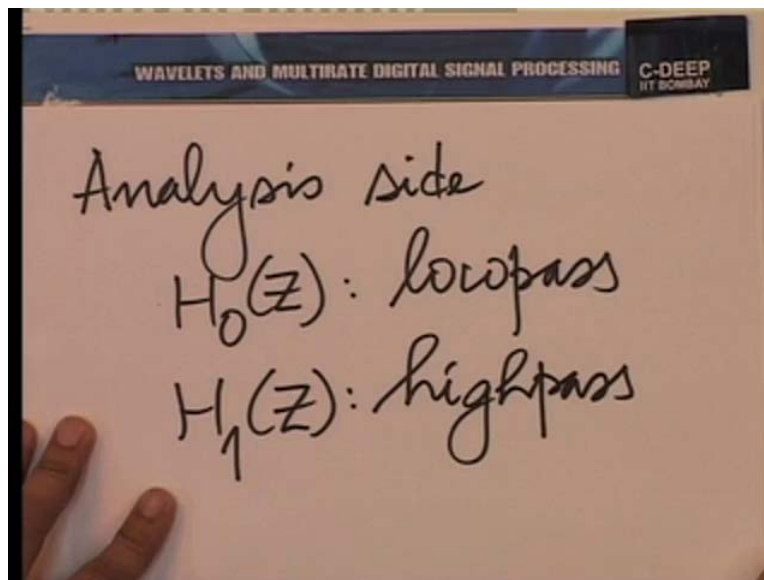 WAVELETS AND MULTIRATE DIGITAL SIGNAL PROCESSING
C-DEEP
IIT BOMBAY
Analysis side
H₀(Z): lowpass
H₁(Z): highpass